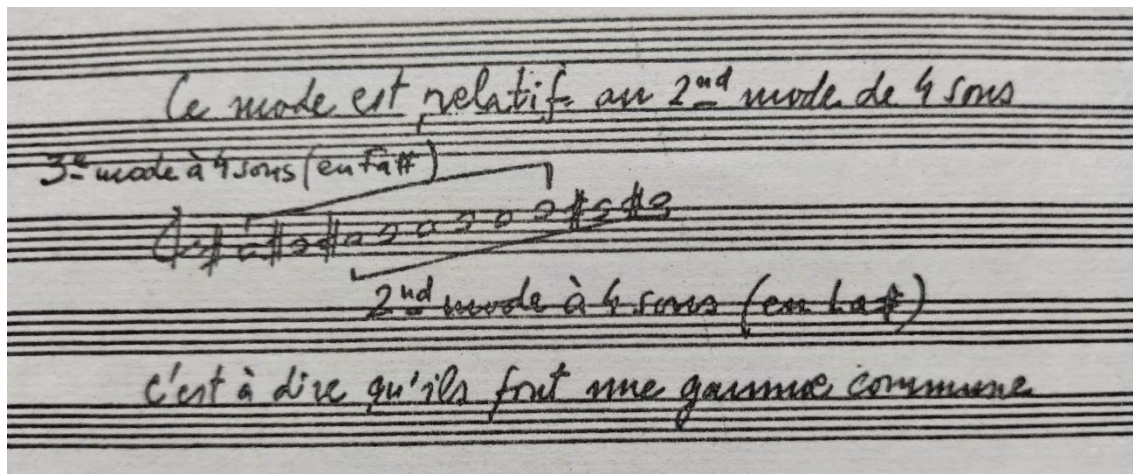 Ce mode est relatif au 2nd mode de 4 sons
3e mode à 4 sons (en Fa#)
2nd mode à 4 sons (en La#)
c'est à dire qu'ils font une gamme commune